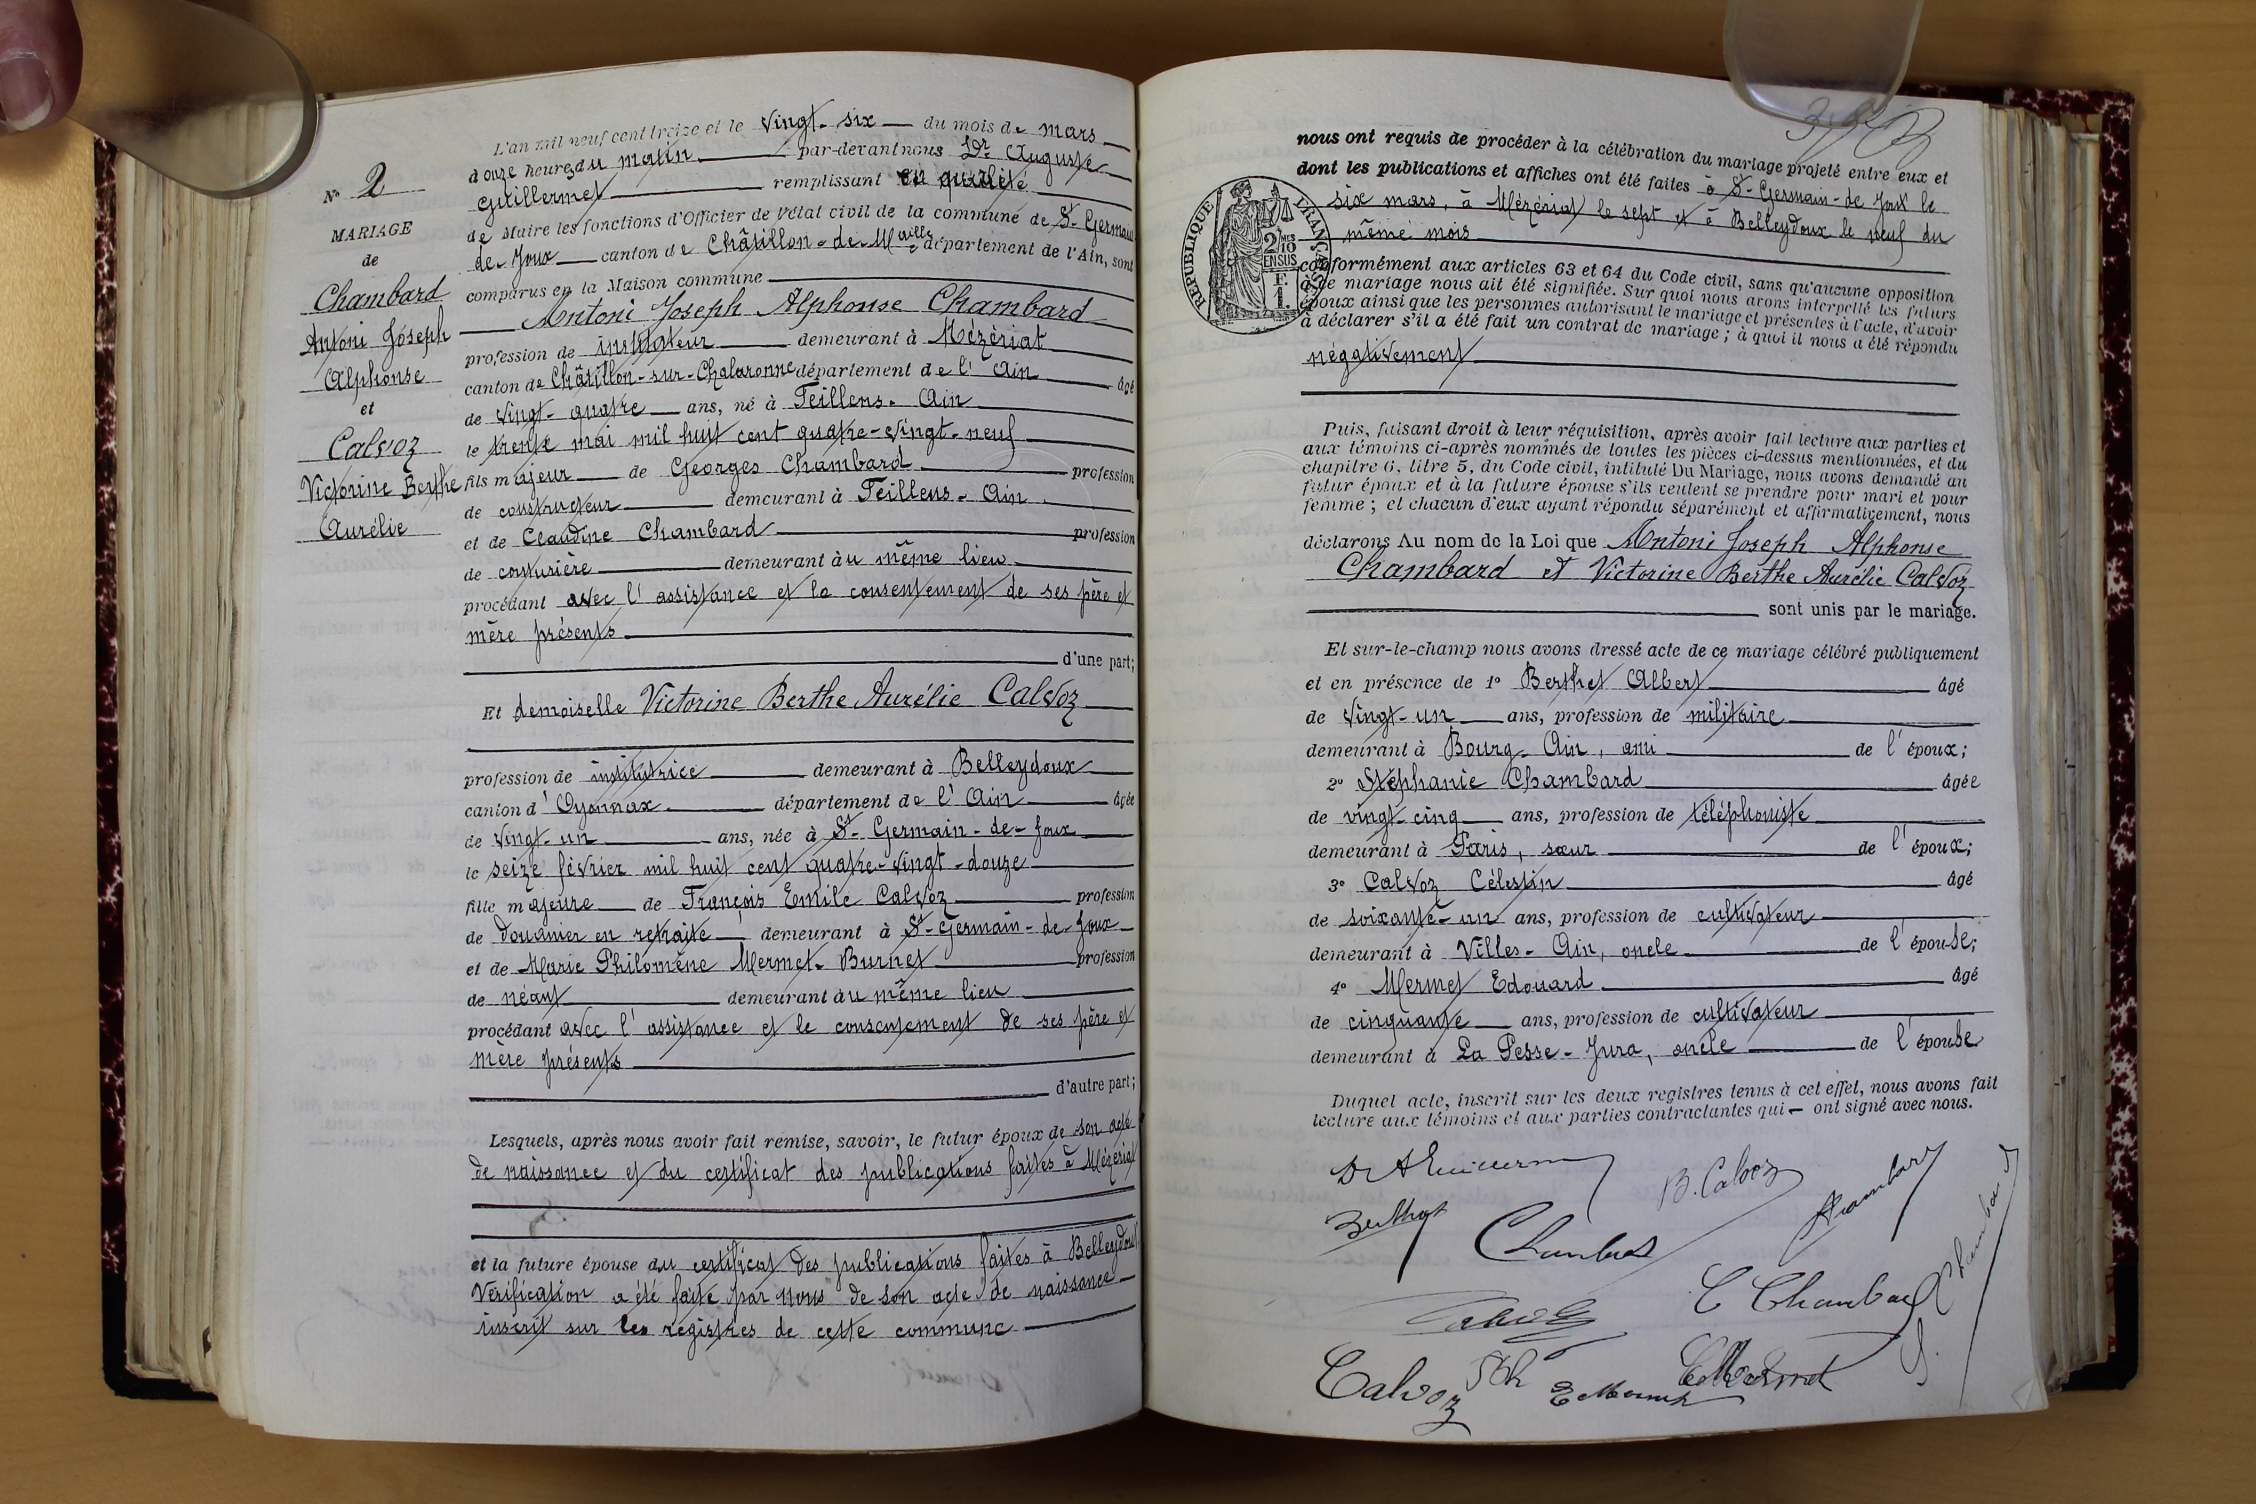 N° 2
MARIAGE
de
Chambard
Antoni Joseph
Alphonse
et
Calvoz
Victorine Berthe
Aurélie
L'an mil neuf cent treize et le vingt-six du mois de mars
douze heures du matin par-devant nous Dr Auguste
Guillermet remplissant en qualité
de Maire les fonctions d'Officier de l'état civil de la commune de St-Germain
de-Joux canton de Châtillon-de-Mlle département de l'Ain, sont
comparus en la Maison commune
Antoni Joseph Alphonse Chambard
profession de instituteur demeurant à Mézériat
canton de Châtillon-sur-Chalaronne département de l'Ain âgé
de vingt-quatre ans, né à Feillens-Ain
le trente mai mil huit cent quatre-vingt-neuf
fils majeur de Georges Chambard profession
de constructeur demeurant à Feillens-Ain
et de Claudine Chambard profession
de couturière demeurant au même lieu
procédant avec l'assistance et le consentement de ses père et
mère présents
d'une part;
Et demoiselle Victorine Berthe Aurélie Calvoz
profession de institutrice demeurant à Belleydoux
canton d'Oyonnax département de l'Ain âgée
de vingt-un ans, née à St-Germain-de-Joux
le seize février mil huit cent quatre-vingt-douze
fille majeure de François Emile Calvoz profession
de douanier en retraite demeurant à St-Germain-de-Joux
et de Marie Philomène Mermet-Burnet profession
de néant demeurant au même lieu
procédant avec l'assistance et le consentement de ses père et
mère présents
d'autre part;
Lesquels, après nous avoir fait remise, savoir, le futur époux de son acte
de naissance et du certificat des publications faites à Mézériat
et la future épouse du certificat des publications faites à Belleydoux
Vérification a été faite par nous de son acte de naissance
inscrit sur les registres de cette commune
nous ont requis de procéder à la célébration du mariage projeté entre eux et
dont les publications et affiches ont été faites à St-Germain-de Joux le
six mars, à Mézériat le sept et à Belleydoux le neuf du
même mois
RÉPUBLIQUE FRANÇAISE
2/10
EN SUS
F.
1.
conformément aux articles 63 et 64 du Code civil, sans qu'aucune opposition
à ce mariage nous ait été signifiée. Sur quoi nous avons interpellé les futurs
époux ainsi que les personnes autorisant le mariage et présentes à l'acte, d'avoir
à déclarer s'il a été fait un contrat de mariage; à quoi il nous a été répondu
négativement
Puis, faisant droit à leur réquisition, après avoir fait lecture aux parties et
aux témoins ci-après nommés de toutes les pièces ci-dessus mentionnées, et du
chapitre 6, titre 5, du Code civil, intitulé Du Mariage, nous avons demandé au
futur époux et à la future épouse s'ils veulent se prendre pour mari et pour
femme; et chacun d'eux ayant répondu séparément et affirmativement, nous
déclarons Au nom de la Loi que Antoni Joseph Alphonse
Chambard et Victorine Berthe Aurélie Calvoz
sont unis par le mariage.
Et sur-le-champ nous avons dressé acte de ce mariage célébré publiquement
et en présence de 1° Berthet Albert âgé
de vingt-un ans, profession de militaire
demeurant à Bourg-Ain, ami de l'époux;
2° Stéphanie Chambard âgée
de vingt-cinq ans, profession de téléphoniste
demeurant à Paris, sœur de l'époux;
3° Calvoz Célestin âgé
de soixante-un ans, profession de cultivateur
demeurant à Villes-Ain, oncle de l'épouse;
4° Mermet Edouard âgé
de cinquante ans, profession de cultivateur
demeurant à La Pesse-Jura, oncle de l'épouse
Duquel acte, inscrit sur les deux registres tenus à cet effet, nous avons fait
lecture aux témoins et aux parties contractantes qui ont signé avec nous.
Dr A Guillermet
B. Calvoz
Chambard
Berthet
Chambard
C Chambard
S. Chambard
Calvoz
Calvoz
E Mermet